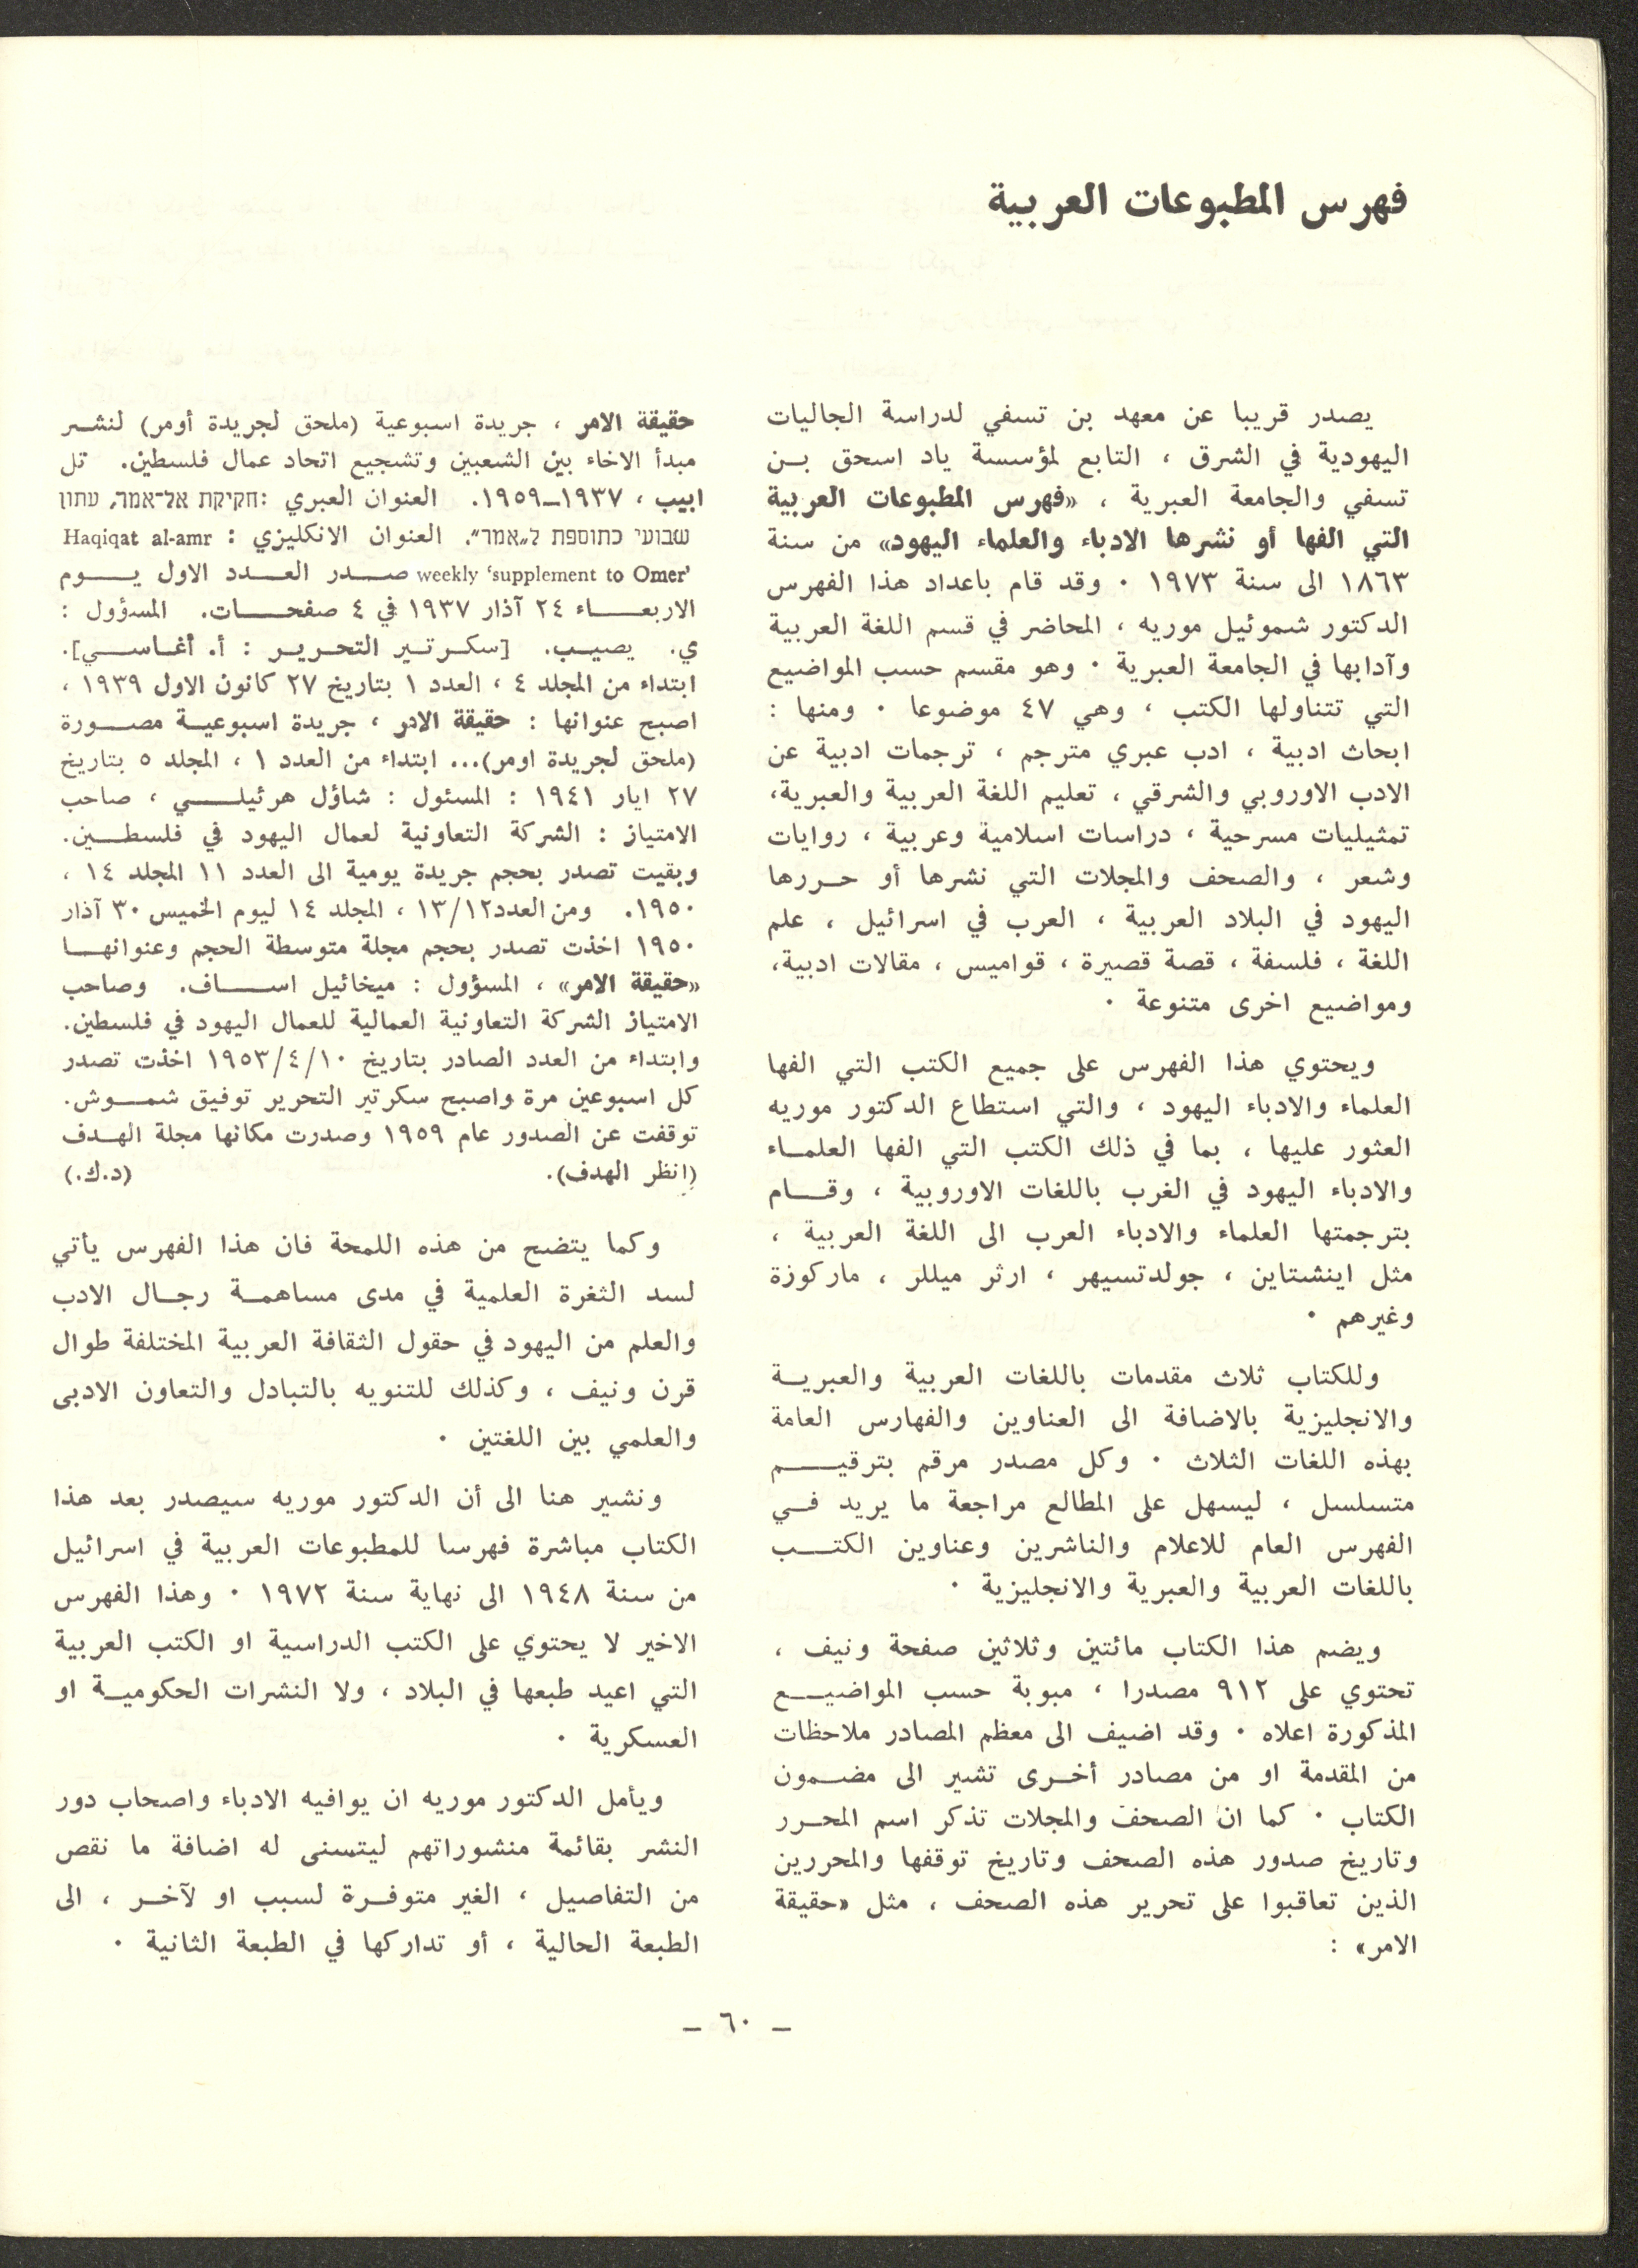 فهرس المطبوعات العربية
يصدر قريبا عن معهد بن تسفي لدراسة الجاليات
اليهودية في الشرق ، التابع لمؤسسة ياد اسحق بن
تسفي والجامعة العبرية ، «فهرس المطبوعات العربية
التي الفها أو نشرها الادباء والعلماء اليهود» من سنة
١٨٦٣ الى سنة ١٩٧٣ ٠ وقد قام باعداد هذا الفهرس
الدكتور شموئيل موريه ، المحاضر في قسم اللغة العربية
وآدابها في الجامعة العبرية ٠ وهو مقسم حسب المواضيع
التي تتناولها الكتب ، وهي ٤٧ موضوعا ٠ ومنها :
ابحاث ادبية ، ادب عبري مترجم ، ترجمات ادبية عن
الادب الاوروبي والشرقي ، تعليم اللغة العربية والعبرية،
تمثيليات مسرحية ، دراسات اسلامية وعربية ، روايات
وشعر ، والصحف والمجلات التي نشرها أو حررها
اليهود في البلاد العربية ، العرب في اسرائيل ، علم
اللغة ، فلسفة ، قصة قصيرة ، قواميس ، مقالات ادبية،
ومواضيع اخرى متنوعة ٠
ويحتوي هذا الفهرس على جميع الكتب التي الفها
العلماء والادباء اليهود ، والتي استطاع الدكتور موريه
العثور عليها ، بما في ذلك الكتب التي الفها العلماء
والادباء اليهود في الغرب باللغات الاوروبية ، وقام
بترجمتها العلماء والادباء العرب الى اللغة العربية ،
مثل اينشتاين ، جولدتسيهر ، ارثر ميللر ، ماركوزة
وغيرهم ٠
وللكتاب ثلاث مقدمات باللغات العربية والعبرية
والانجليزية بالاضافة الى العناوين والفهارس العامة
بهذه اللغات الثلاث ٠ وكل مصدر مرقم بترقيم
متسلسل ، ليسهل على المطالع مراجعة ما يريد في
الفهرس العام للاعلام والناشرين وعناوين الكتب
باللغات العربية والعبرية والانجليزية ٠
ويضم هذا الكتاب مائتين وثلاثين صفحة ونيف ،
تحتوي على ٩١٢ مصدرا ، مبوبة حسب المواضيع
المذكورة اعلاه ٠ وقد اضيف الى معظم المصادر ملاحظات
من المقدمة او من مصادر أخرى تشير الى مضمون
الكتاب ٠ كما ان الصحف والمجلات تذكر اسم المحرر
وتاريخ صدور هذه الصحف وتاريخ توقفها والمحررين
الذين تعاقبوا على تحرير هذه الصحف ، مثل «حقيقة
الامر» :
حقيقة الامر ، جريدة اسبوعية (ملحق لجريدة أومر) لنشر
مبدأ الاخاء بين الشعبين وتشجيع اتحاد عمال فلسطين. تل
ابيب ، ١٩٣٧–١٩٥٩. العنوان العبري :חקיקת אל־אמר, עתון
שבועי כתוספת ל„אמר״. العنوان الانكليزي : Haqiqat al-amr
weekly ‘supplement to Omer’ صدر العدد الاول يوم
الاربعاء ٢٤ آذار ١٩٣٧ في ٤ صفحات. المسؤول :
ي. يصيب. [سكرتير التحرير : أ. أغاسي].
ابتداء من المجلد ٤ ، العدد ١ بتاريخ ٢٧ كانون الاول ١٩٣٩ ،
اصبح عنوانها : حقيقة الامر ، جريدة اسبوعية مصورة
(ملحق لجريدة اومر)... ابتداء من العدد ١ ، المجلد ٥ بتاريخ
٢٧ ايار ١٩٤١ : المسئول : شاؤل هرئيلي ، صاحب
الامتياز : الشركة التعاونية لعمال اليهود في فلسطين.
وبقيت تصدر بحجم جريدة يومية الى العدد ١١ المجلد ١٤ ،
١٩٥٠. ومن العدد١٣/١٢ ، المجلد ١٤ ليوم الخميس ٣٠ آذار
١٩٥٠ اخذت تصدر بحجم مجلة متوسطة الحجم وعنوانها
«حقيقة الامر» ، المسؤول : ميخائيل اساف. وصاحب
الامتياز الشركة التعاونية العمالية للعمال اليهود في فلسطين.
وابتداء من العدد الصادر بتاريخ ١٩٥٣/٤/١٠ اخذت تصدر
كل اسبوعين مرة واصبح سكرتير التحرير توفيق شموش.
توقفت عن الصدور عام ١٩٥٩ وصدرت مكانها مجلة الهدف
(انظر الهدف). (د.ك.)
وكما يتضح من هذه اللمحة فان هذا الفهرس يأتي
لسد الثغرة العلمية في مدى مساهمة رجال الادب
والعلم من اليهود في حقول الثقافة العربية المختلفة طوال
قرن ونيف ، وكذلك للتنويه بالتبادل والتعاون الادبى
والعلمي بين اللغتين ٠
ونشير هنا الى أن الدكتور موريه سيصدر بعد هذا
الكتاب مباشرة فهرسا للمطبوعات العربية في اسرائيل
من سنة ١٩٤٨ الى نهاية سنة ١٩٧٢ ٠ وهذا الفهرس
الاخير لا يحتوي على الكتب الدراسية او الكتب العربية
التي اعيد طبعها في البلاد ، ولا النشرات الحكومية او
العسكرية ٠
ويأمل الدكتور موريه ان يوافيه الادباء واصحاب دور
النشر بقائمة منشوراتهم ليتسنى له اضافة ما نقص
من التفاصيل ، الغير متوفرة لسبب او لآخر ، الى
الطبعة الحالية ، أو تداركها في الطبعة الثانية ٠
– ٦٠ –